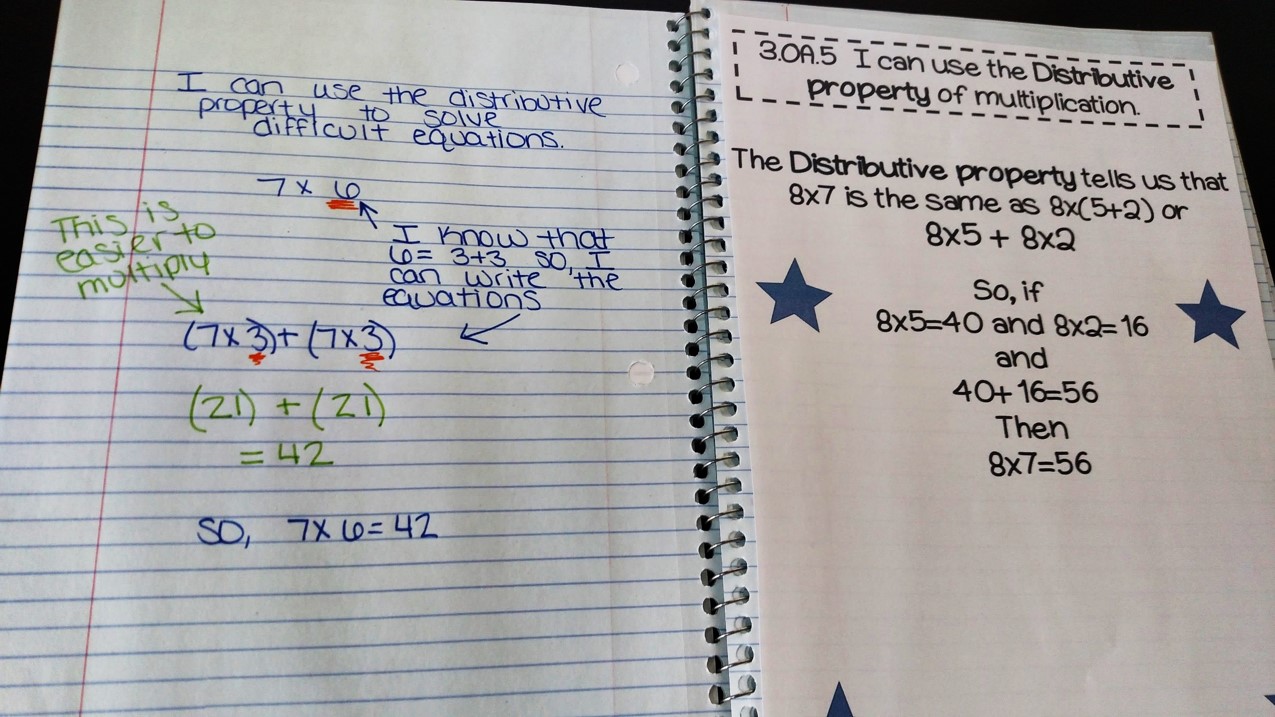 I can use the distributive
property to solve
difficult equations.
7 x 6
This is
easier to
multiply
I know that
6 = 3+3 so, I
can write the
equations
(7 x 3) + (7 x 3)
(21) + (21)
= 42
SO, 7 x 6 = 42
3.OA.5 I can use the Distributive
property of multiplication.
The Distributive property tells us that
8x7 is the same as 8x(5+2) or
8x5 + 8x2
So, if
8x5=40 and 8x2=16
and
40+16=56
Then
8x7=56